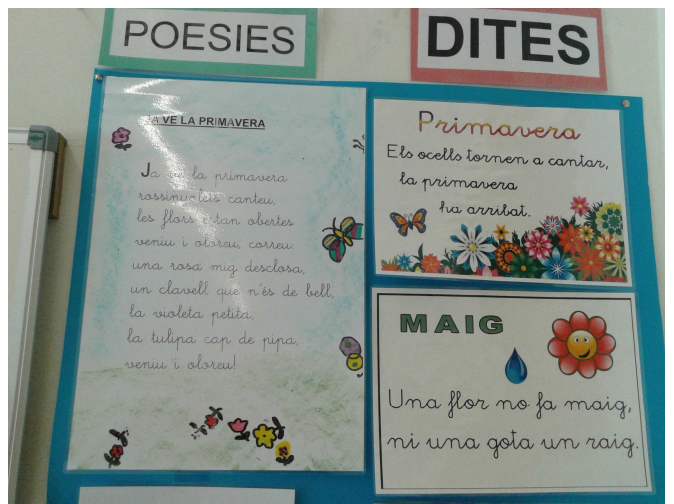 POESIES
JA VE LA PRIMAVERA
Ja ve la primavera
rossinyolets canteu,
les flors estan obertes
veniu i oloreu, correu:
una rosa mig desclosa,
un clavell que n'és de bell,
la violeta petita,
la tulipa cap de pipa,
veniu i oloreu!
DITES
Primavera
Els ocells tornen a cantar,
la primavera
ha arribat.
MAIG
Una flor no fa maig,
ni una gota un raig.